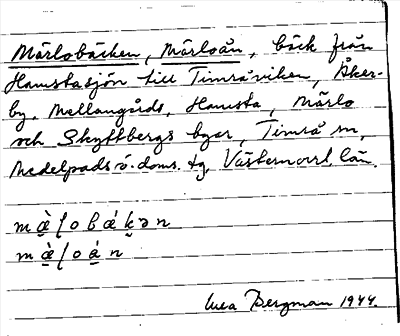 Märlobäcken, Märloån, bäck från
Hamstasjön till Timråviken, Åker-
by, Mellangårds, Hamsta, Märlo
och Skyttbergs byar, Timrå sn,
Medelpads ö. doms. tg, Västernorrl. län.
mæ̀ɭobǽḱən
mæ̀ɭoán
Bergman 1944.